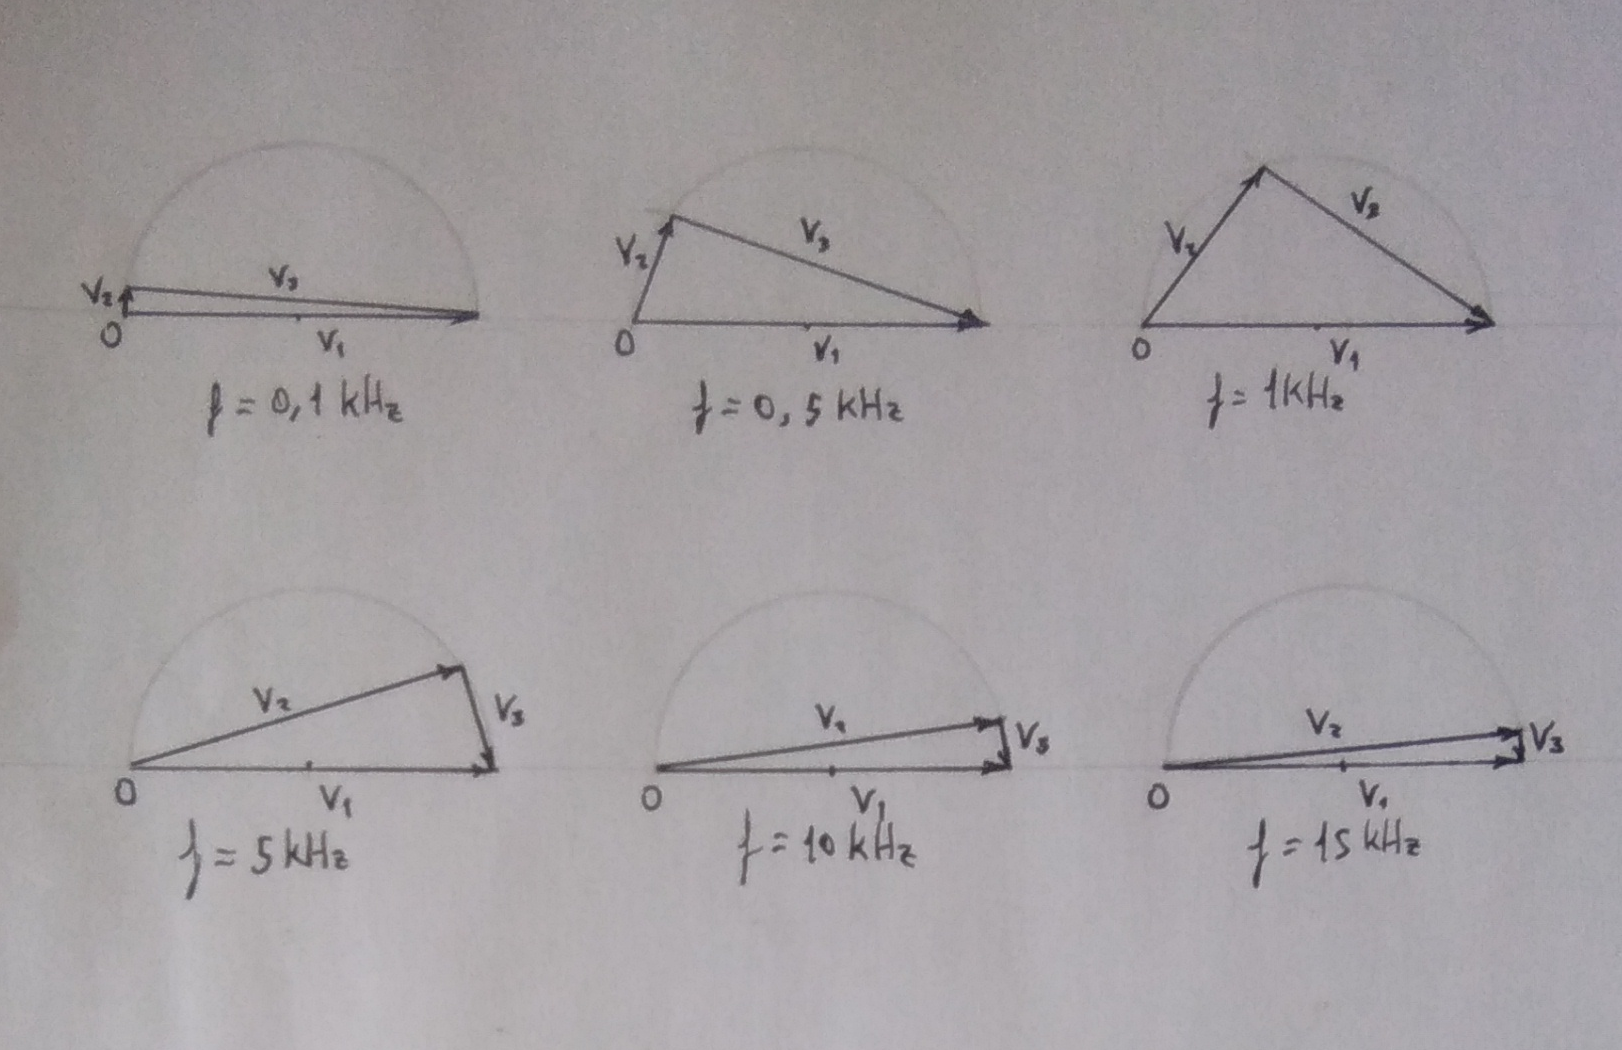 V₂ V₃
0 V₁
f = 0,1 kHz
V₂ V₃
0 V₁
f = 0,5 kHz
V₂ V₃
0 V₁
f = 1kHz
V₂ V₃
0 V₁
f = 5 kHz
V₂ V₃
0 V₁
f = 10 kHz
V₂ V₃
0 V₁
f = 15 kHz